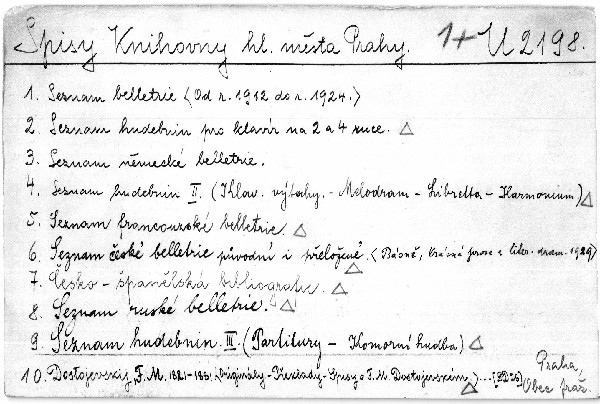 Spisy Knihovny hl. města Prahy. 1+ U 2198.
1. Seznam belletrie (Od r. 1912 do r. 1924.)
2. Seznam hudebnin pro klavír na 2 a 4 ruce. △
3. Seznam německé belletrie.
4. Seznam hudebnin II. (Khlav. výtahy. - Melodram - Libretta - Harmonium) △
5. Seznam francouzské belletrie. △
6. Seznam české belletrie původní i přeložené. (Básně, krásná prosa a liter. dram. 1929) △
7. Česko - španělská bibliografie. △
8. Seznam ruské belletrie. △
9. Seznam hudebnin. III. (Partitury - Komorní hudba) △
10. Dostojevskij, F. M. 1821-1881. (Originály - Překlady - Spisy o F. M. Dostojevském.) △
Praha,
Obec praž.